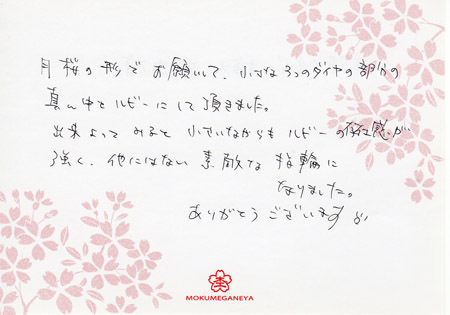 月桜の形でお願いして、小さな3つのダイヤの部分の
真ん中をルビーにして頂きました。
出来上がってみると小さいながらもルビーの存在感が
強く、他にはない素敵な指輪に
なりました。
ありがとうございます
MOKUMEGANEYA